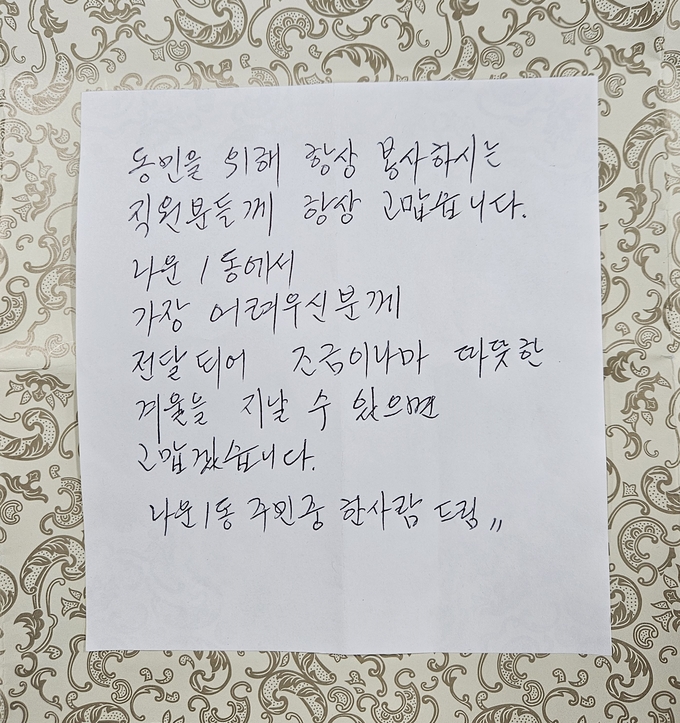 동민을 위해 항상 봉사하시는
직원분들께 항상 고맙습니다.
나운 1동에서
가장 어려우신분께
전달되어 조금이나마 따뜻한
겨울을 지날 수 있으면
고맙겠습니다.
나운1동 주민중 한사람 드림〃